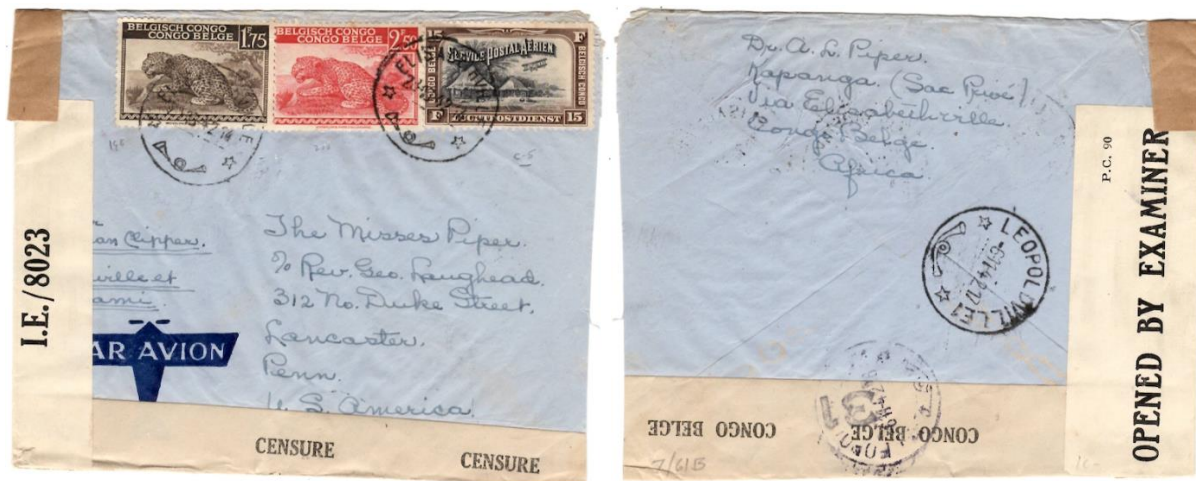 BELGISCH CONGO
CONGO BELGE
1F75
BELGISCH CONGO
CONGO BELGE
15 F
SERVICE POSTAL AÉRIEN
CONGO BELGE
BELGISCH CONGO
F LUCHTPOSTDIENST 15
I.E./8023
Clipper.
ville et
The Misses Piper.
c/o Rev. Geo. Laughead.
312 No. Duke Street.
Lancaster.
Penn.
U.S. America
PAR AVION
CENSURE
CENSURE
Dr. A. L. Piper.
Kapanga. (Sac Privé)
Via Elisabethville.
Congo Belge.
Africa.
P.C. 90
OPENED BY EXAMINER
LEOPOLDVILLE 1
CONGO BELGE
CONGO BELGE
31
7/61B